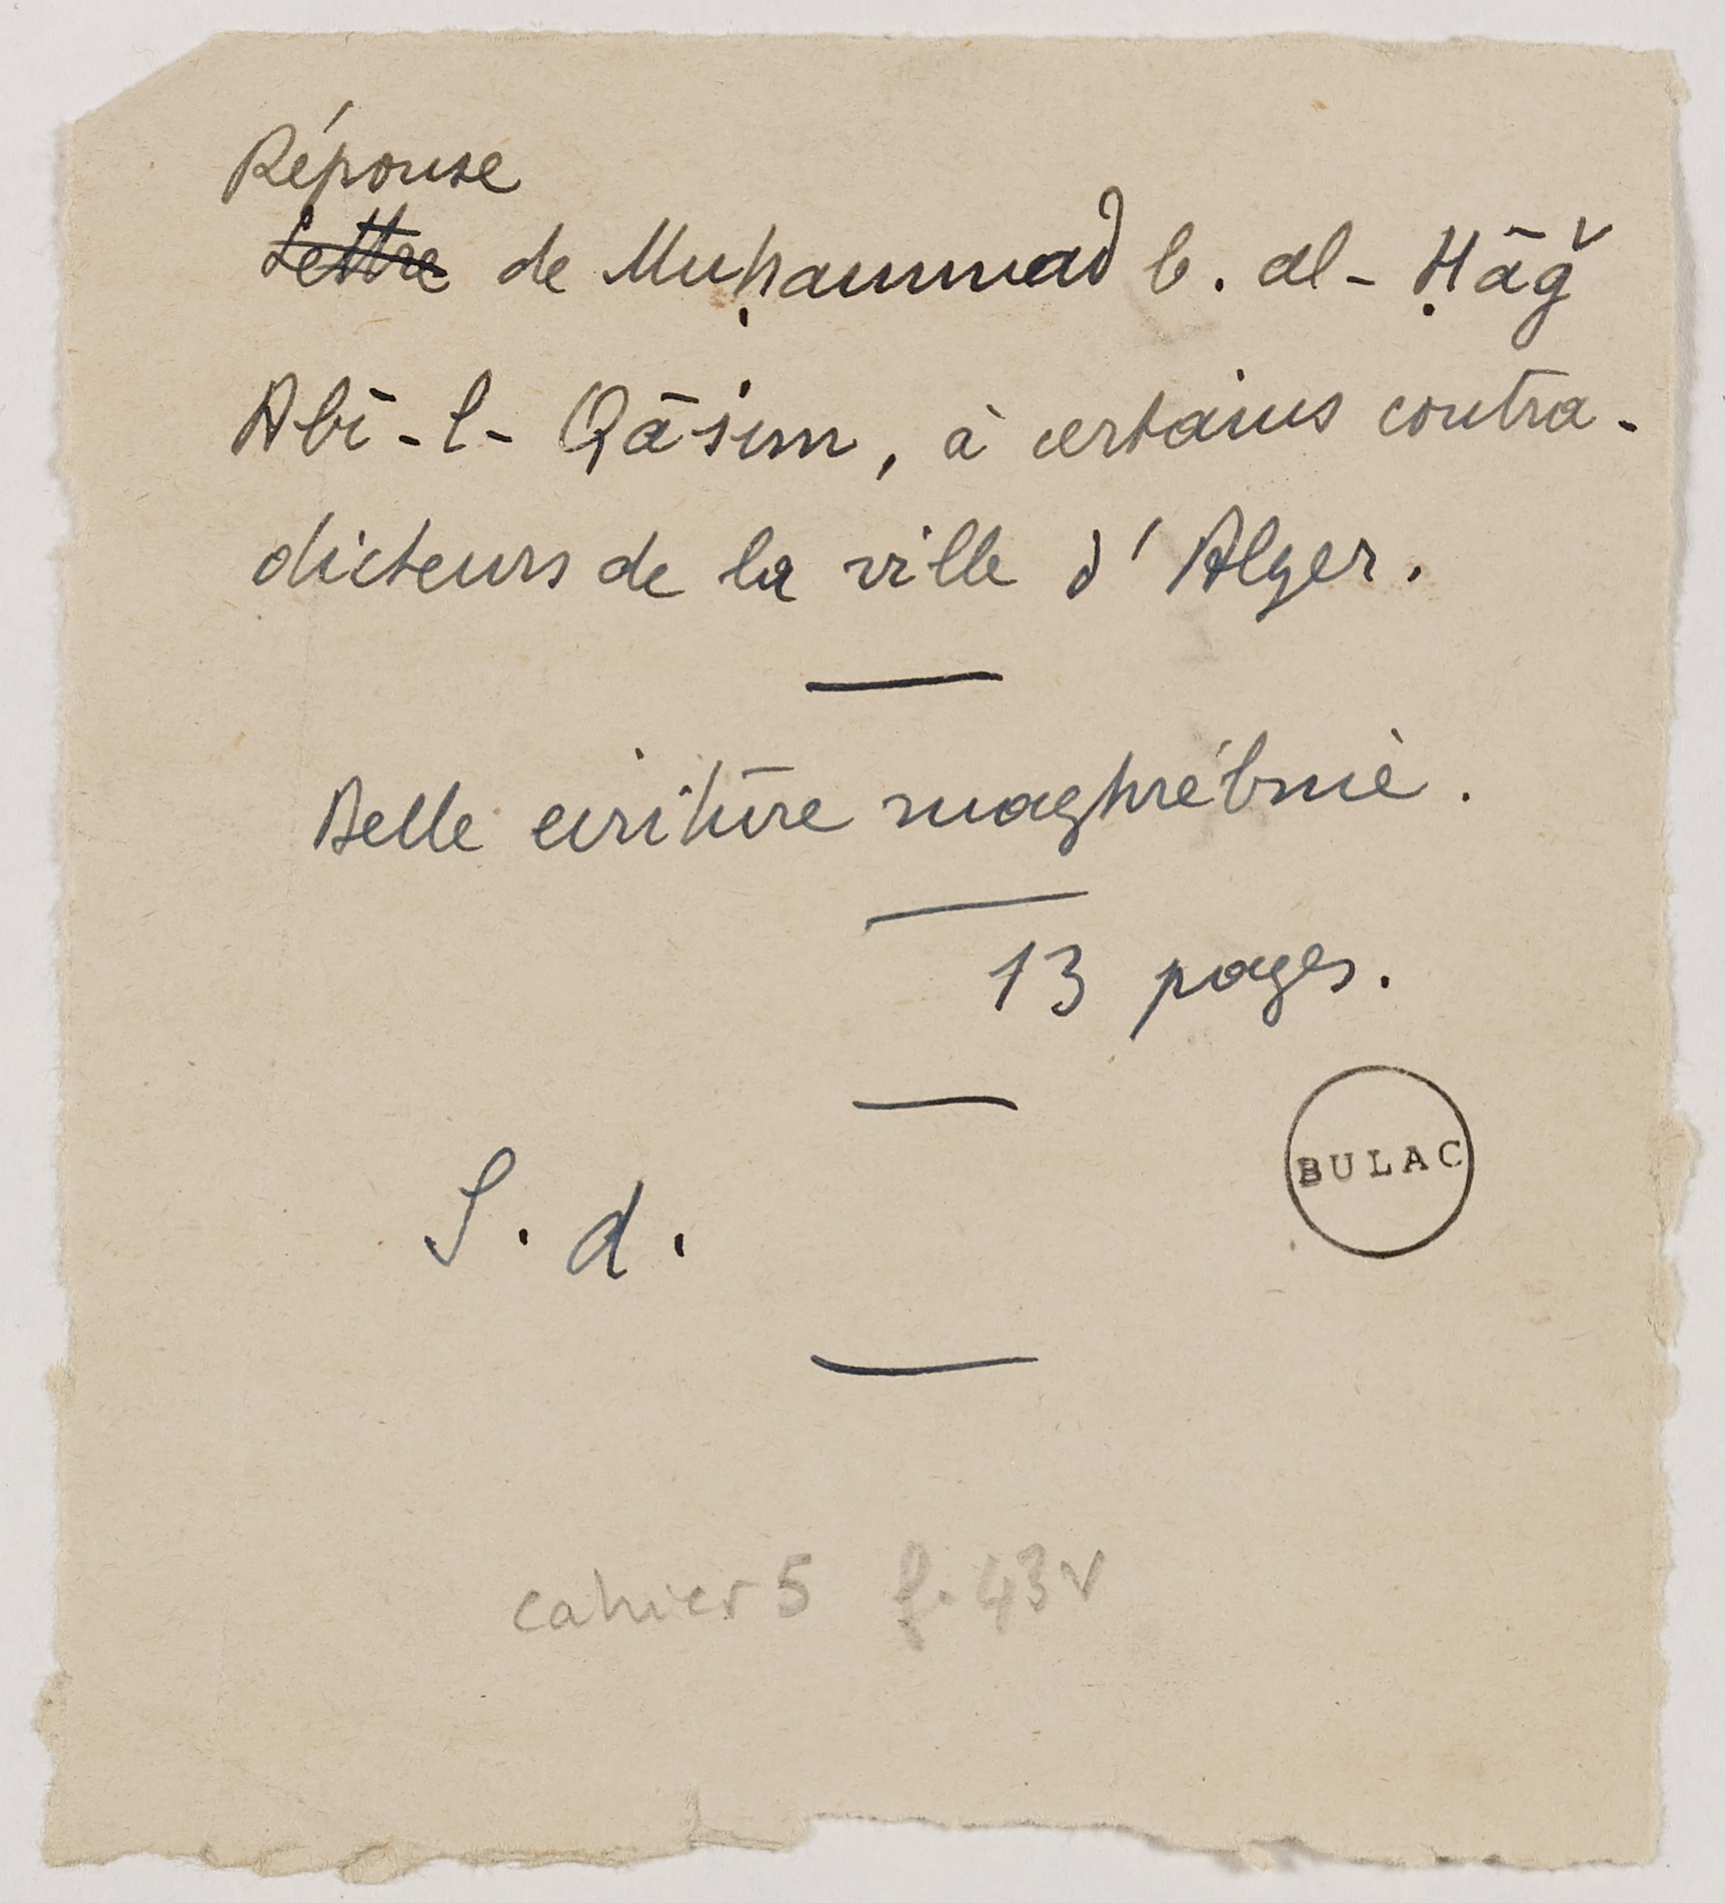 Réponse
Lettre de Muḥammad b. al-Ḥāǧ
Abī-l-Qāsim, à certains contra-
dicteurs de la ville d'Alger.
Belle écriture maghrébine.
13 pages.
BULAC
S. d.
cahier 5 f. 43v